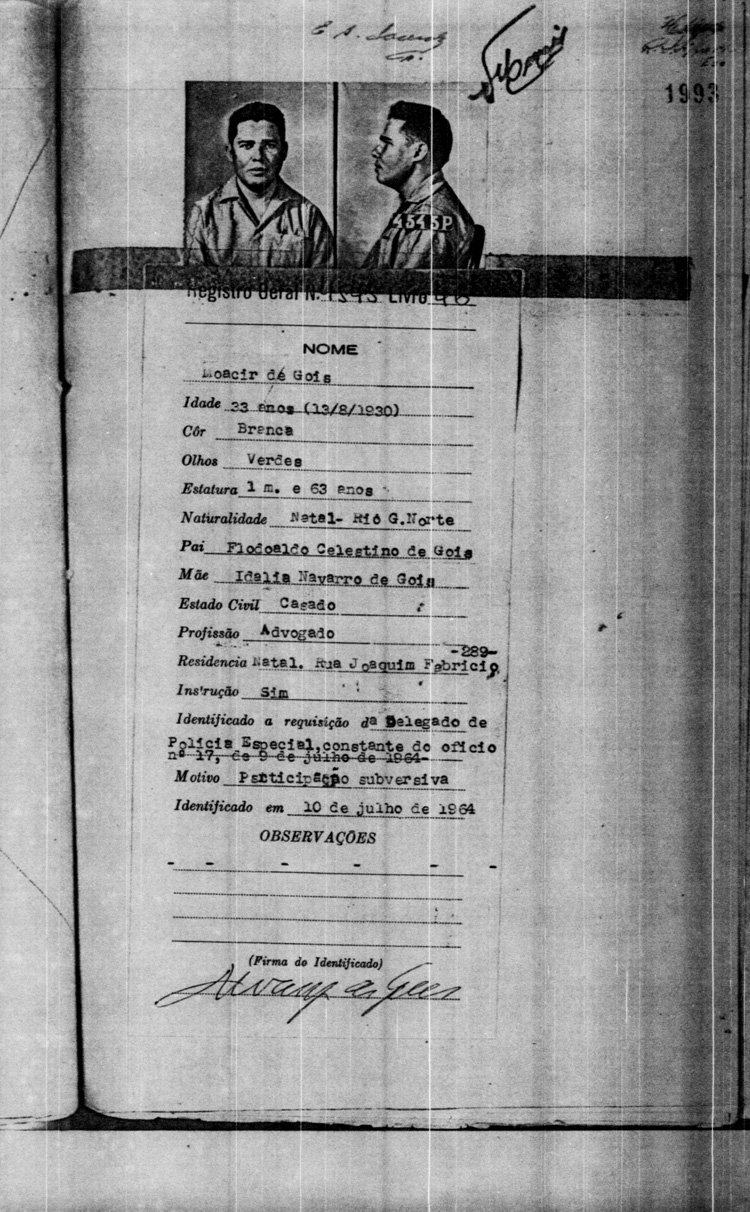 1993
4343P
Registro Geral N. Livro
NOME
Moacir de Gois
Idade 33 anos (13/8/1930)
Côr Branca
Olhos Verdes
Estatura 1 m. e 63 anos
Naturalidade Natal- Rio G.Norte
Pai Flodoaldo Celestino de Gois
Mãe Idalia Navarro de Gois
Estado Civil Casado
Profissão Advogado
-289-
Residencia Natal. Rua Joaquim Fabricio,
Instrução Sim
Identificado a requisição da Delegado de
Policia Especial,constante do oficio
nº 17, de 9 de julho de 1964-
Motivo Participação subversiva
Identificado em 10 de julho de 1964
OBSERVAÇÕES
- - - - - -
(Firma do Identificado)